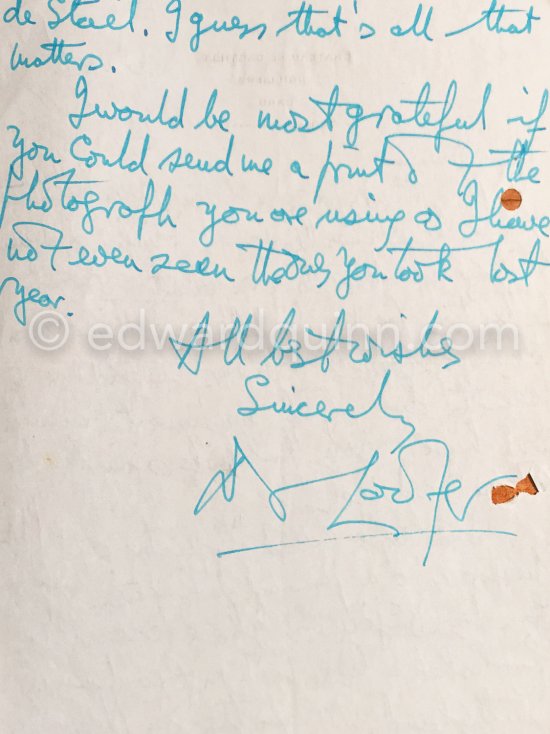 de Staël. I guess that's all that
matters.
I would be most grateful if
you could send me a print of the
photograph you are using as I have
not even seen the ones you took last
year.
© edwardquinn.com
All best wishes
Sincerely